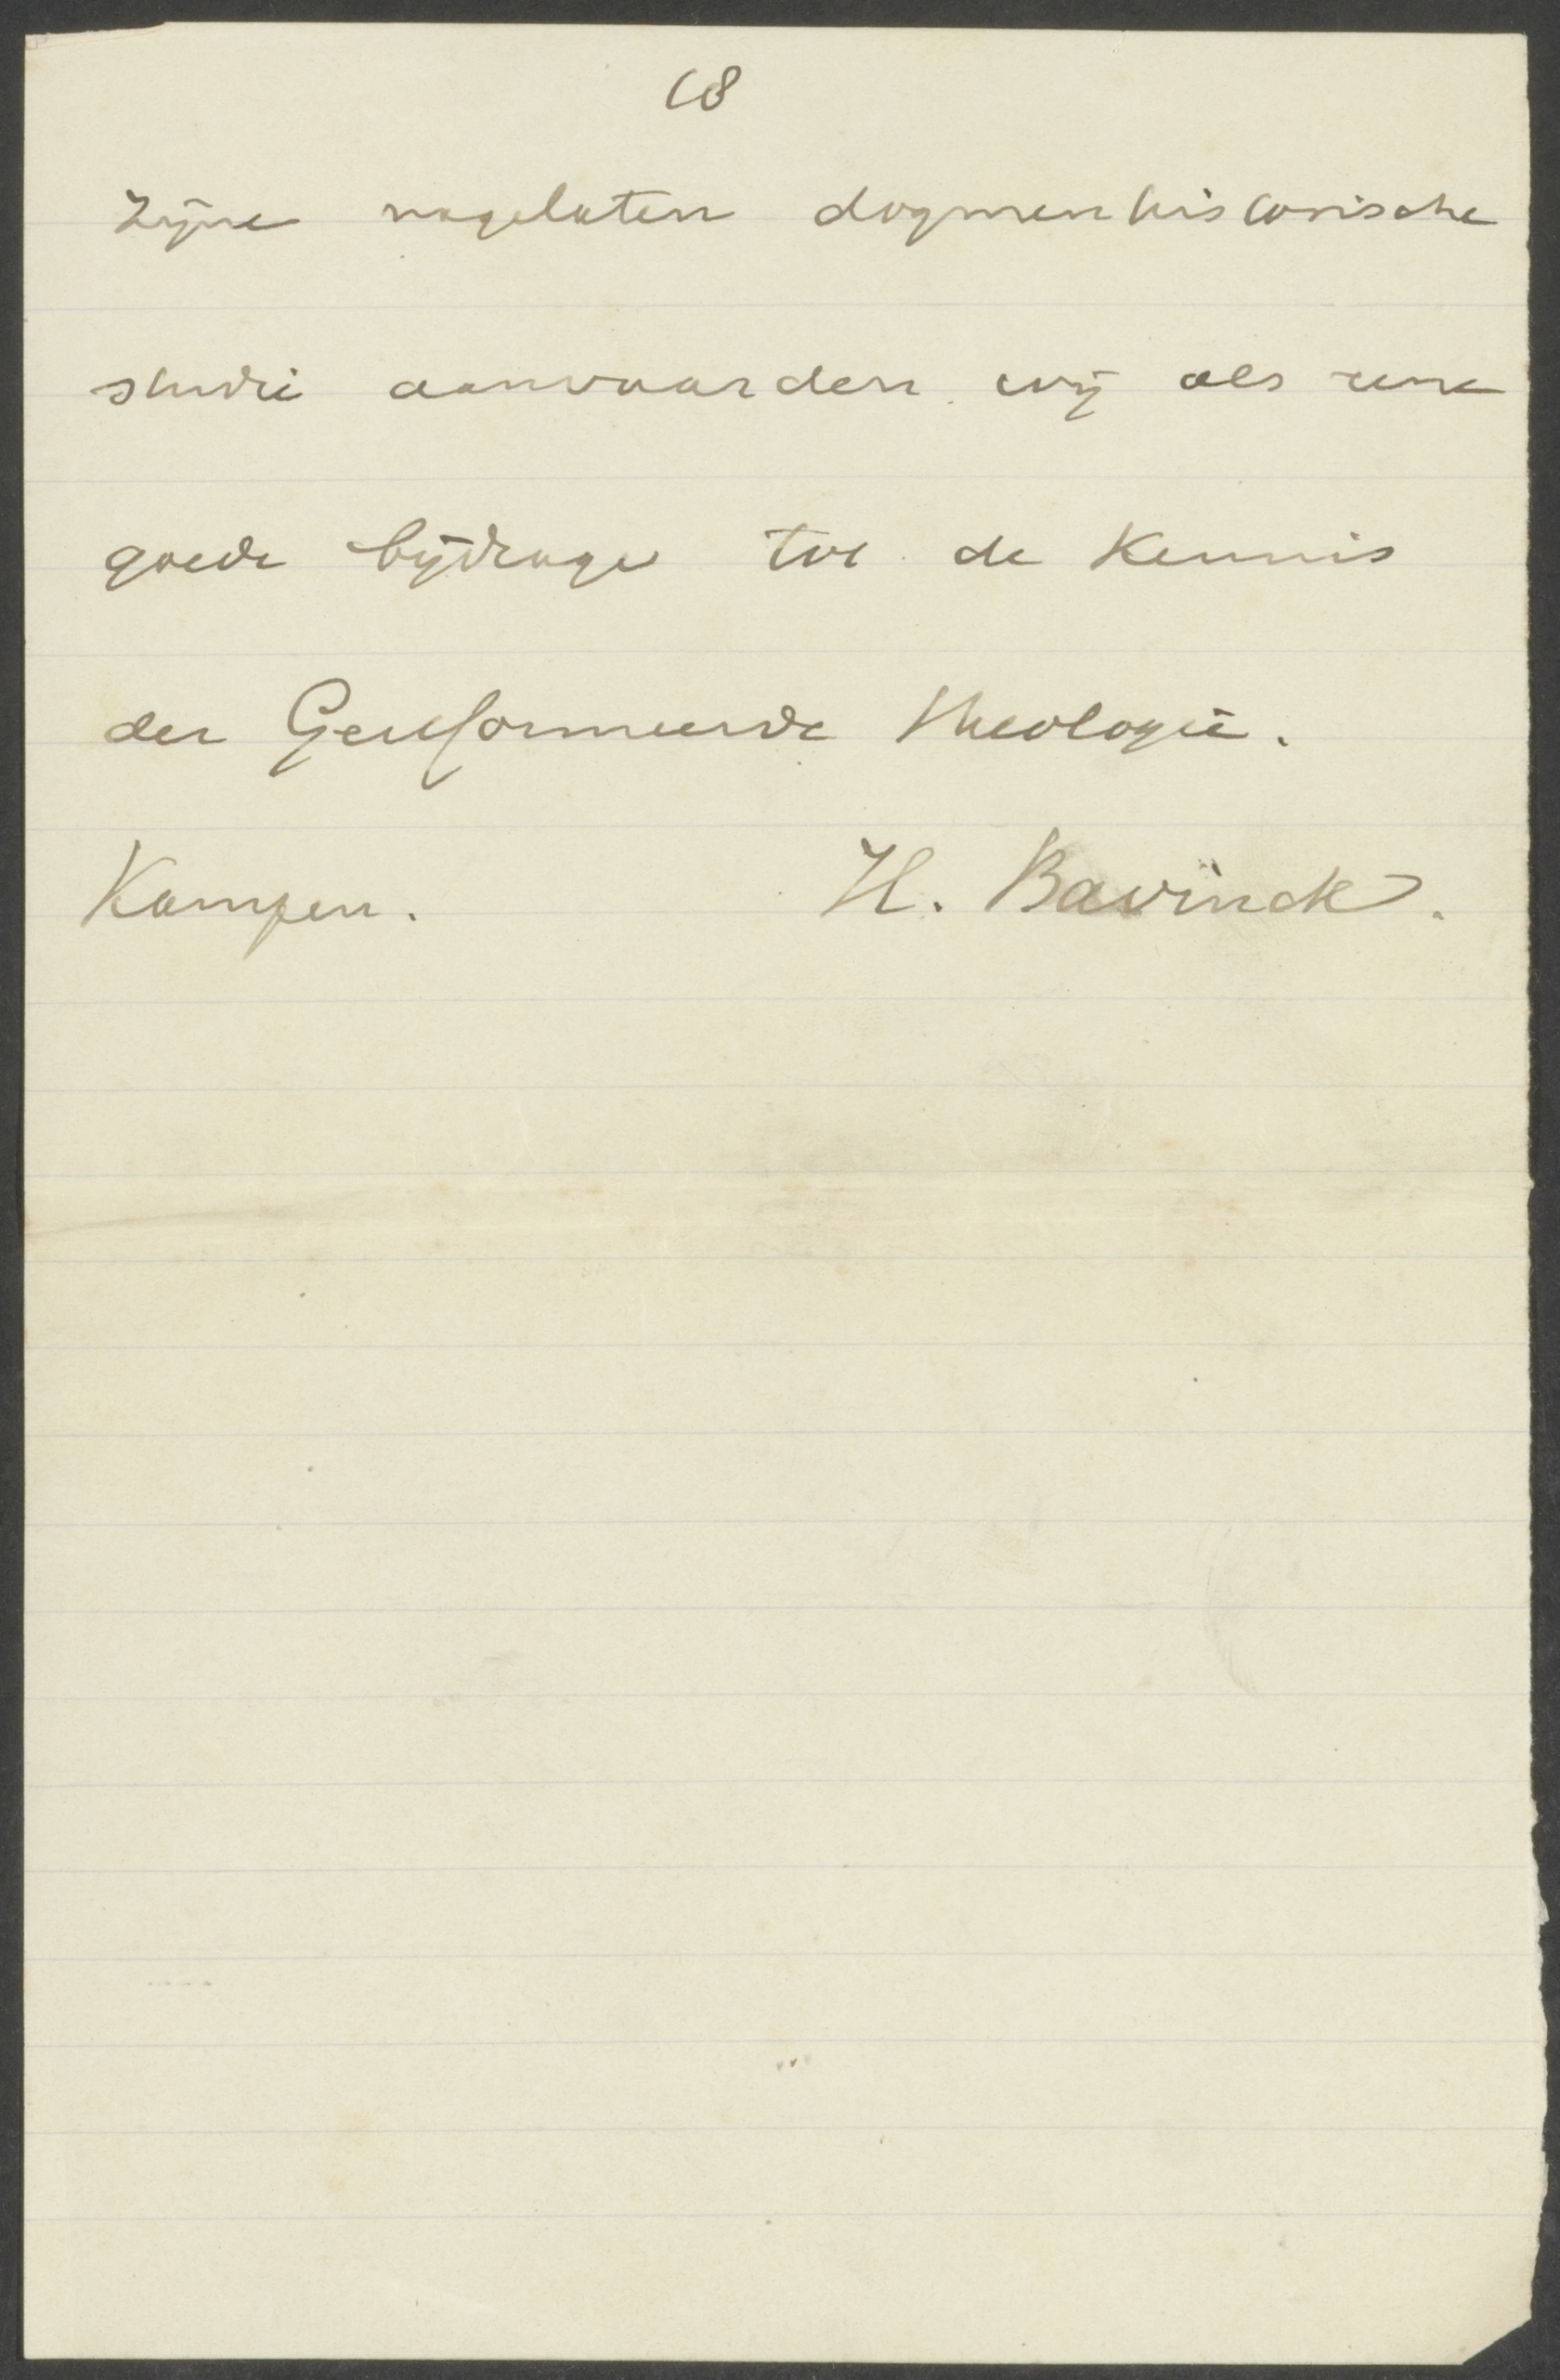 18
zijne nagelaten dogmenhistorische
studie aanvaarden wij als eene
goede bijdrage tot de kennis
der Gereformeerde theologie.
Kampen. H. Bavinck.